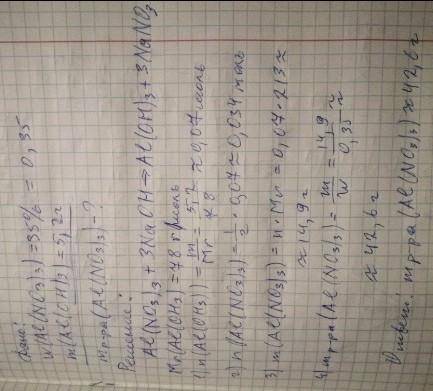 Дано:
w(Al(NO3)3)=35% = 0,35
m(Al(OH)3)=5,2г
mр-ра(Al(NO3)3)-?
Решение:
Al(NO3)3 + 3NaOH → Al(OH)3 + 3NaNO3
Mr(Al(OH)3 = 78 г/моль
1) n(Al(OH)3) = m/Mr = 5,2/78 ≈ 0,07 моль
2) n(Al(NO3)3) = 1/2 · 0,07 ≈ 0,034 моль
3) m(Al(NO3)3) = n · Mr = 0,07 · 213 ≈
≈ 14,9 г
4) mр-ра(Al(NO3)3) = m/w = 14,9/0,35 ≈
≈ 42,6 г
Ответ: mр-ра(Al(NO3)3) ≈ 42,6 г